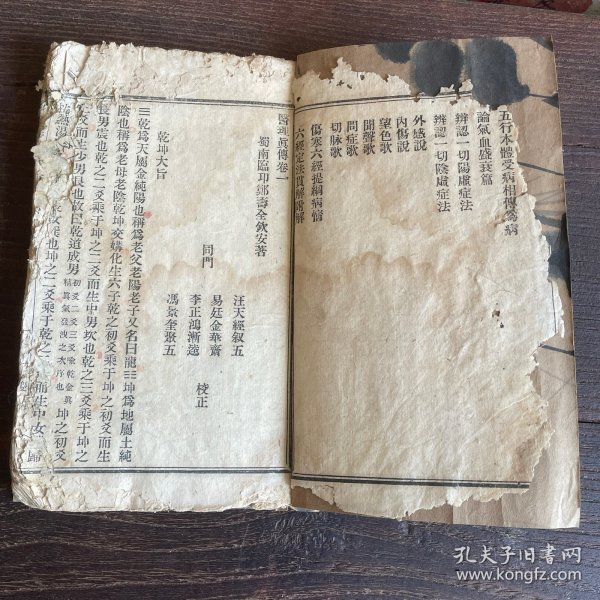 五行本體受病相傳爲病
論氣血盛衰篇
辨認一切陽虛症法
辨認一切陰虛症法
外感說
內傷說
望色歌
聞聲歌
問症歌
切脉歌
傷寒六經提綱病情
六經定法貫解附解
醫理眞傳卷一
蜀南臨邛鄭壽全欽安著
同門
汪天經叙五
易廷金華齋
李正鴻漸逵
馮
奎聚五
校正
乾坤大旨
☰乾爲天屬金純陽也稱爲老父老陽老子又名曰龍☷坤爲地屬土純
陰也稱爲老母老陰乾坤交媾化生六子乾之初爻乘于坤之初爻而生
長男震也乾之二爻乘于坤之二爻而生中男坎也乾之三爻乘于坤之
三爻而生少男艮也故曰乾道成男
初爻二爻三爻喩乾金眞
精眞氣發洩之次序也
坤之初爻
女巽也坤之二爻乘于乾之二
而生中女
孔夫子旧書网
www.kongfz.com